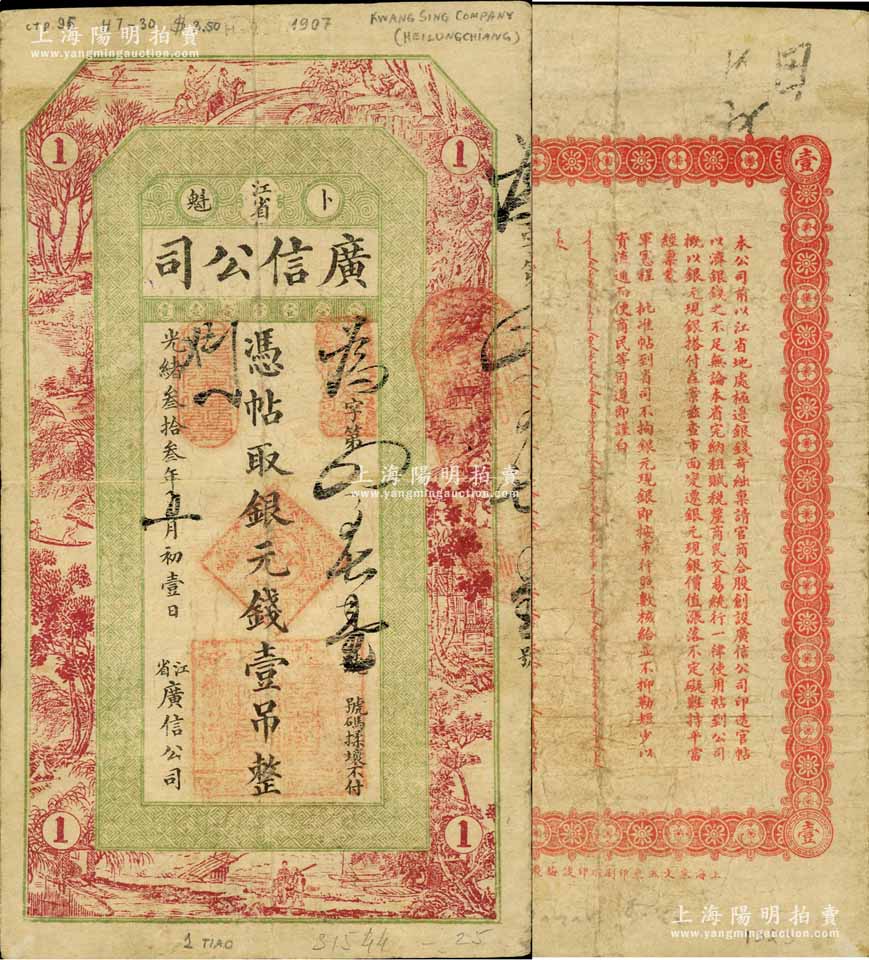 CTP 95 47-30 $3.50 1907 KWANG SING COMPANY
(HEILUNGCHIANG)
上海陽明拍賣
www.yangmingauction.com
1
1
卜
江省
魁
廣信公司
字第
號碼揉壞不付
憑帖取銀元錢壹吊整
光緒叁拾叁年
月初壹日
江省
廣信公司
上海陽明拍賣
www.yangmingauction.com
1
1
1 TIAO 31544 -25
壹
本公司前以江省地處極邊銀錢奇絀稟請官商合股創設廣信公司印造官帖
以濟銀錢之不足無論本省完納租賦稅釐商民交易統行一律使用帖到公司
概以銀元現銀搭付在案茲查市面變遷銀元現銀價值漲落不定礙難持平當
經稟蒙
軍憲程 批准帖到省司不拘銀元現銀即按市行照數核給並不抑勒短少以
資流通而便商民等因遵即謹白
壹
上海陽明拍賣
www.yangmingauction.com